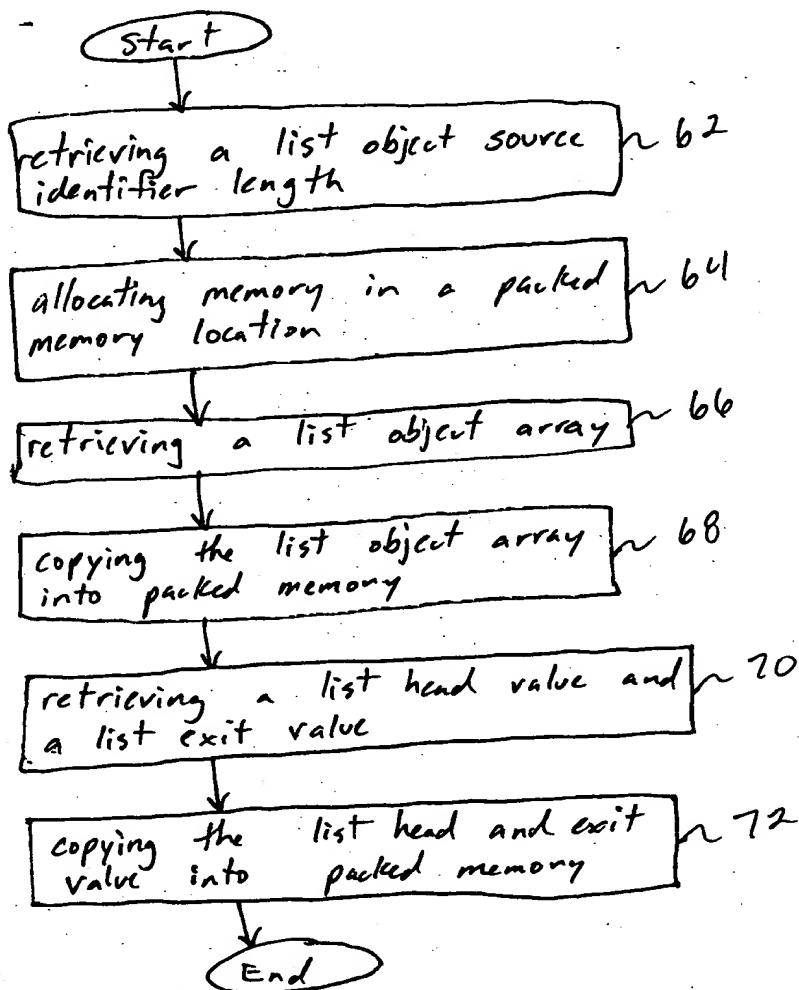 Start
retrieving a list object source 62
identifier length
allocating memory in a packed 64
memory location
retrieving a list object array 66
copying the list object array 68
into packed memory
retrieving a list head value and 70
a list exit value
copying the list head and exit 72
value into packed memory
End